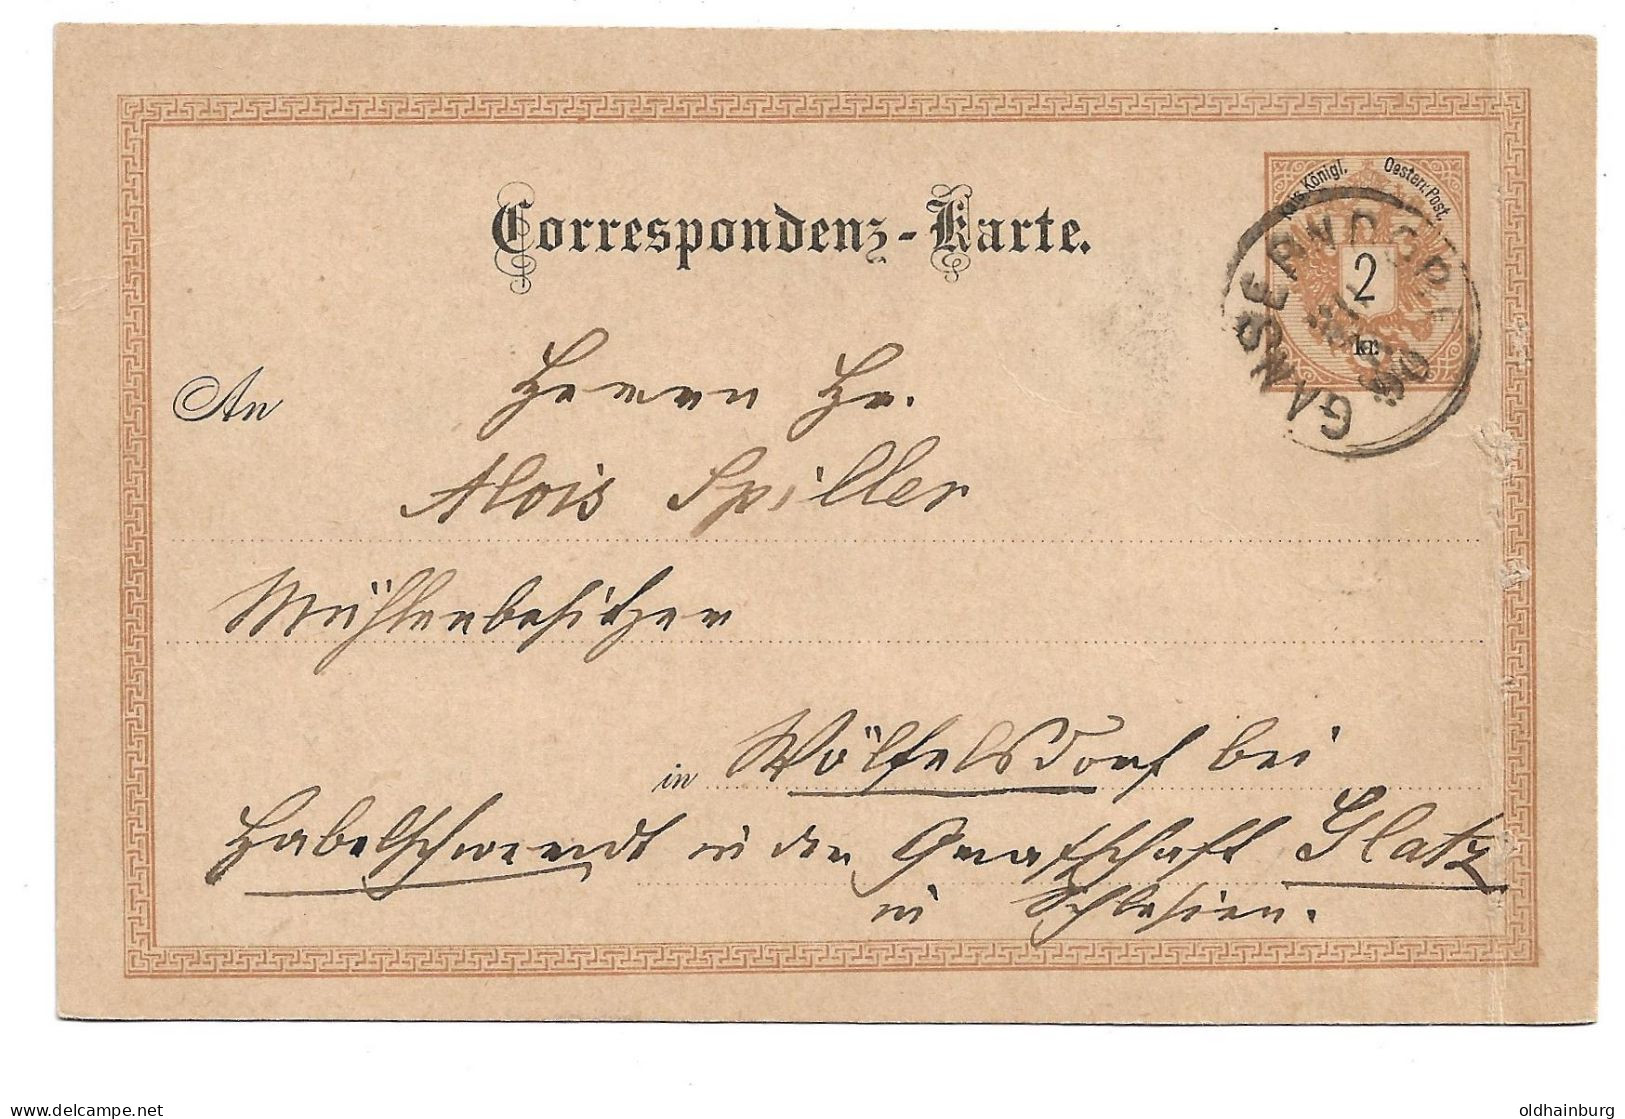 Correspondenz-Karte.
Kais. Königl. Oesterr. Post.
2
kr.
GÄNSERNDORF
90
An Herrn Hr.
Alois Spiller
Mühlenbesitzer
in Wölfelsdorf bei
Habelschwerdt in der Grafschaft Glatz
in Schlesien.
delcampe.net
oldhainburg